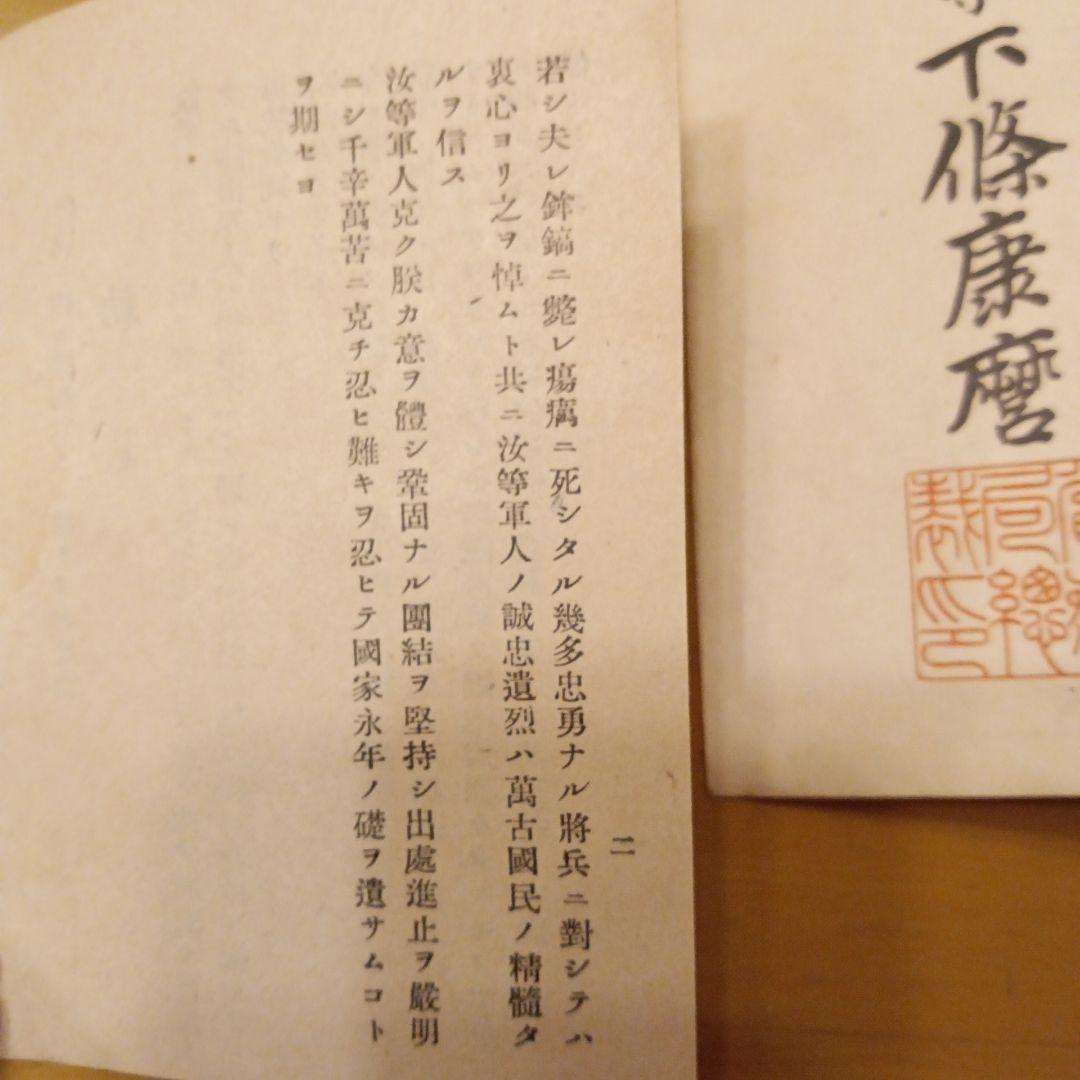 下條康麿
二
若シ夫レ鉾鏑ニ斃レ瘍癘ニ死シタル幾多忠勇ナル將兵ニ對シテハ
裏心ヨリ之ヲ悼ムト共ニ汝等軍人ノ誠忠遺烈ハ萬古國民ノ精髓タ
ルヲ信ス
汝等軍人克ク朕カ意ヲ體シ鞏固ナル團結ヲ堅持シ出處進止ヲ嚴明
ニシ千辛萬苦ニ克チ忍ヒ難キヲ忍ヒテ國家永年ノ礎ヲ遺サムコト
ヲ期セヨ